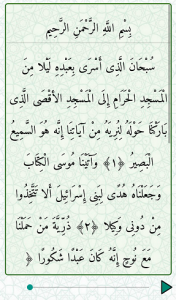 بِسْمِ اللَّهِ الرَّحْمَنِ الرَّحِيمِ
سُبْحَانَ الَّذِى أَسْرَى بِعَبْدِهِ لَيْلًا مِنَ
الْمَسْجِدِ الْحَرَامِ إِلَى الْمَسْجِدِ الأَقْصَى الَّذِى
بَارَكْنَا حَوْلَهُ لِنُرِيَهُ مِنْ آيَاتِنَا إِنَّهُ هُوَ السَّمِيعُ
الْبَصِيرُ ﴿١﴾ وَآتَيْنَا مُوسَى الْكِتَابَ
وَجَعَلْنَاهُ هُدًى لِبَنِى إِسْرَائِيلَ أَلَّا تَتَّخِذُوا
مِنْ دُونِى وَكِيلًا ﴿٢﴾ ذُرِّيَّةَ مَنْ حَمَلْنَا
مَعَ نُوحٍ إِنَّهُ كَانَ عَبْدًا شَكُورًا ﴿